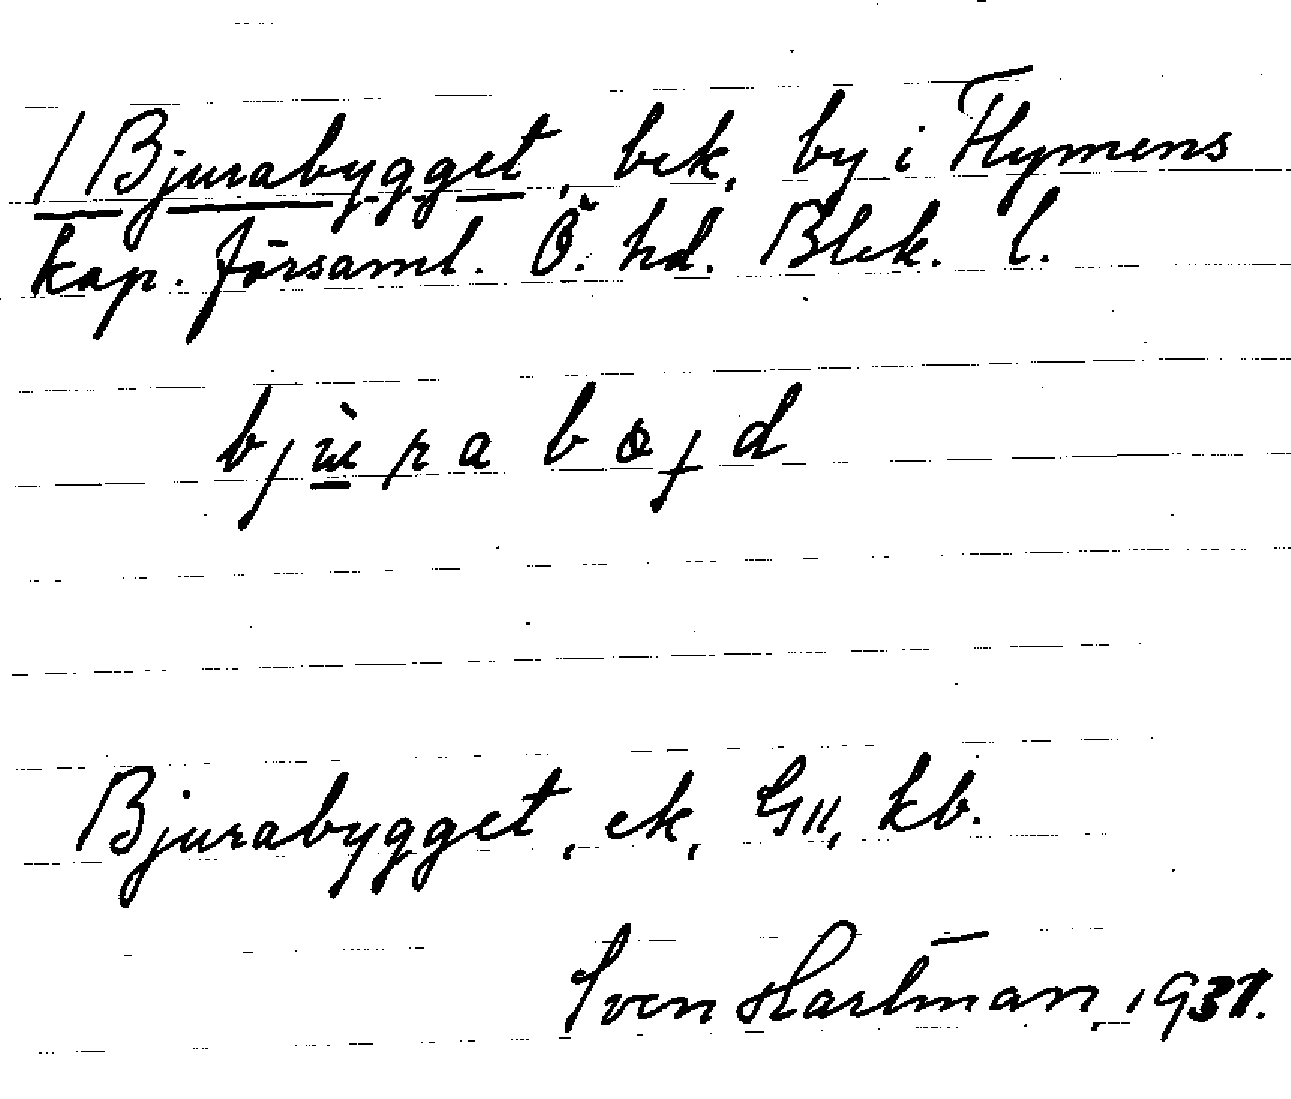 / Bjurabygget, bek, by i Flymens
kap. församl. Ö. hd. Blek. l.
Bjurabygget, ek, GII, kb.
Sven Hartman, 1937.